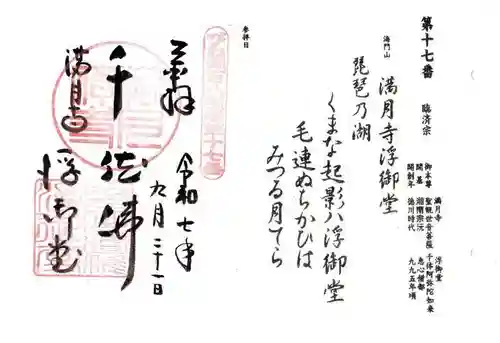 第十七番
臨済宗
満月寺 浮御堂
御本尊 聖観世音菩薩 千体阿弥陀如来
開基 湖南宗沅 恵心僧都
開創年 徳川時代 九九五年頃
海門山
満月寺浮御堂
琵琶乃湖
くまな起影ハ浮御堂
毛連ぬちかひは
みつる月てら
参拝日
奉拝
令和七年
九月二十一日
千体佛
満月寺
浮御堂